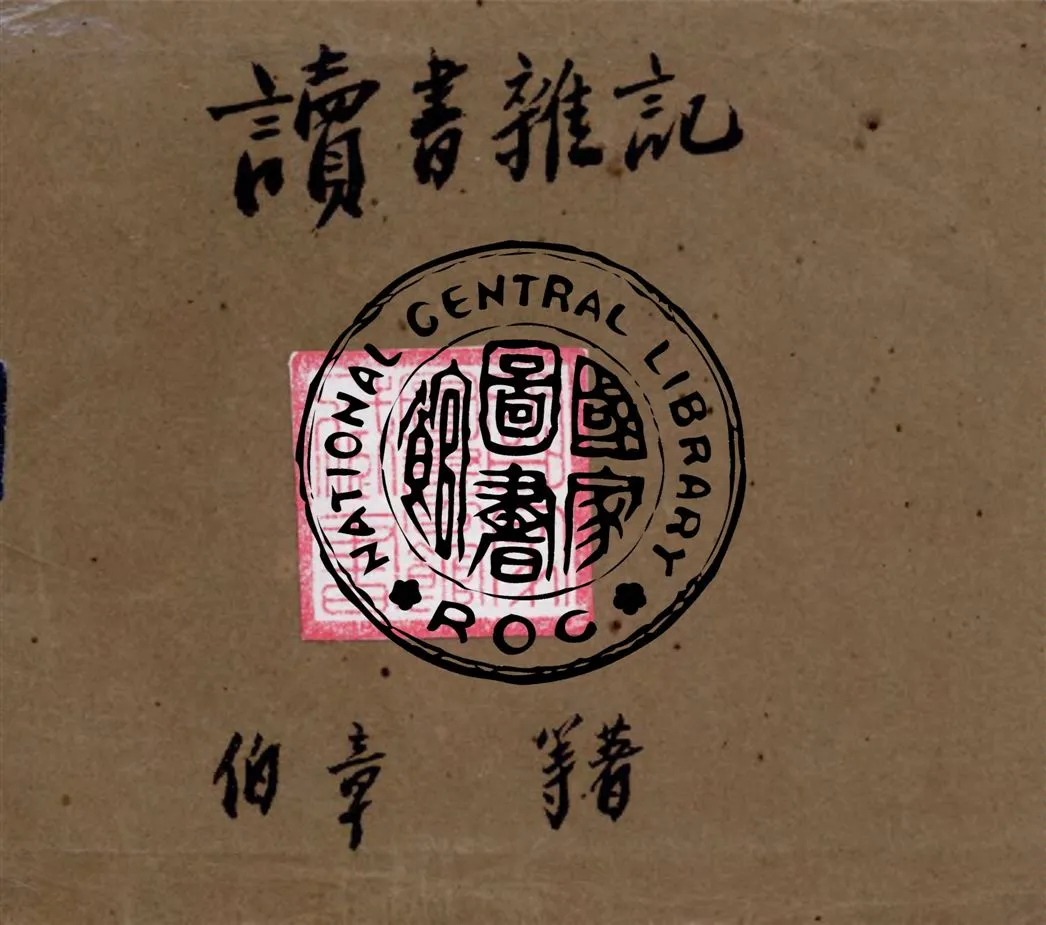 讀書雜記
NATIONAL CENTRAL LIBRARY
國家
圖書
館
ROC
伯章 等著